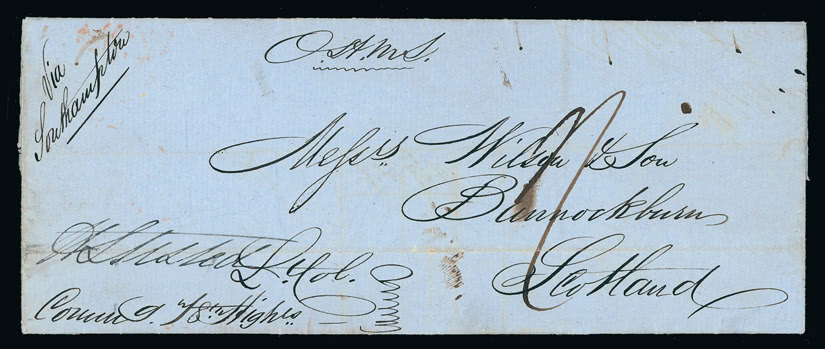 Via
Southampton
O.H.M.S.
Messrs Wilson & Son
Bannockburn
Scotland
Lt. Col.
Comm g. 78th Highrs